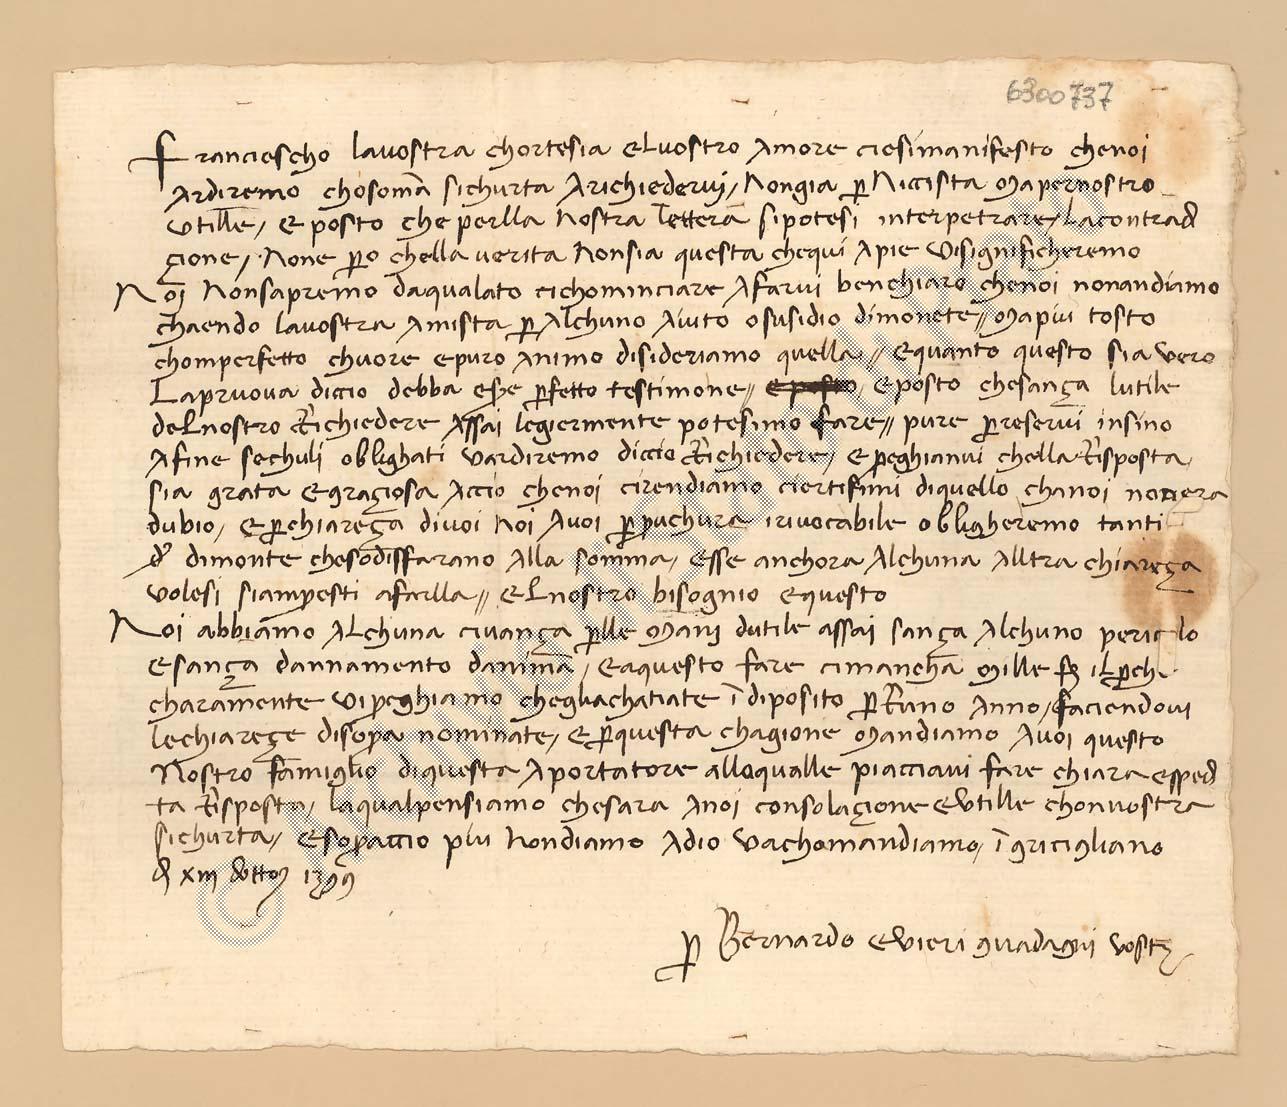 6300737
Franciescho lavostra chortesia elvostro Amore ciesimanifesto chenoi
Ardiremo chosomā sichurta Arichiedervi, Nongia p Niccista Mapernostro
Utille, E posto che perlla Nostra letterā sipotesi interpetrare, lacontrad
çione, None po chella verita Nonsia questa chequi Apie Visignificheremo
Noi Nonsapremo daqualato cichominciare Afarvi benchiaro chenoi nonandiamo
chaendo lavostra Amista p Alchuno Aiuto osusidio dimonete, Mapiu tosto
chomperfetto chuore epuro Animo disideriamo quella, Equanto questo sia vero
Lapruova diccio debba eše pfetto testimone, e posto, E posto chesança lutile
delnostro Richiedere Assai legiermente potesimo fare, pure preservi insino
Afine sechuli oblighati vardiremo diccio Richiedere, E peghianvi chella Risposta
sia grata Egraçiosa Accio chenoi cirendiamo ciertifimi diquello chanoi nonnera
dubio, E pchiareça divoi Noi Avoi p puchura irivocabile obligheremo tanti
dimonte chesodisffarano Alla sommā, Esse anchora Alchuna Alltra chiareça
volesi siampesti afarlla, Elnostro bisognio equesto
Noi abbiamo Alchuna civança plle Mani dutile assai sança Alchuno periclo
Esança dannamento danimā, Eaquesto fare cimanchā Mille il pch
charamente vipeghiamo cheglachatiate ī diposito p Runo Anno, faciendovi
lechiareçe disopa nominate, E pquesta chagione Mandiamo Avoi questo
Nostro famiglio diquesta Aportatore alloqualle piacciavi fare chiara esped
ta Risposta, laqualpensiamo chesara Anoi consolaçione Eutille chonvostra
sichurta, Esopaccio piu Nondiamo Adio vachomandiamo, ī gricigliano
dì xiii dotto 1399
p Bernardo Evieri guadagnii vostr